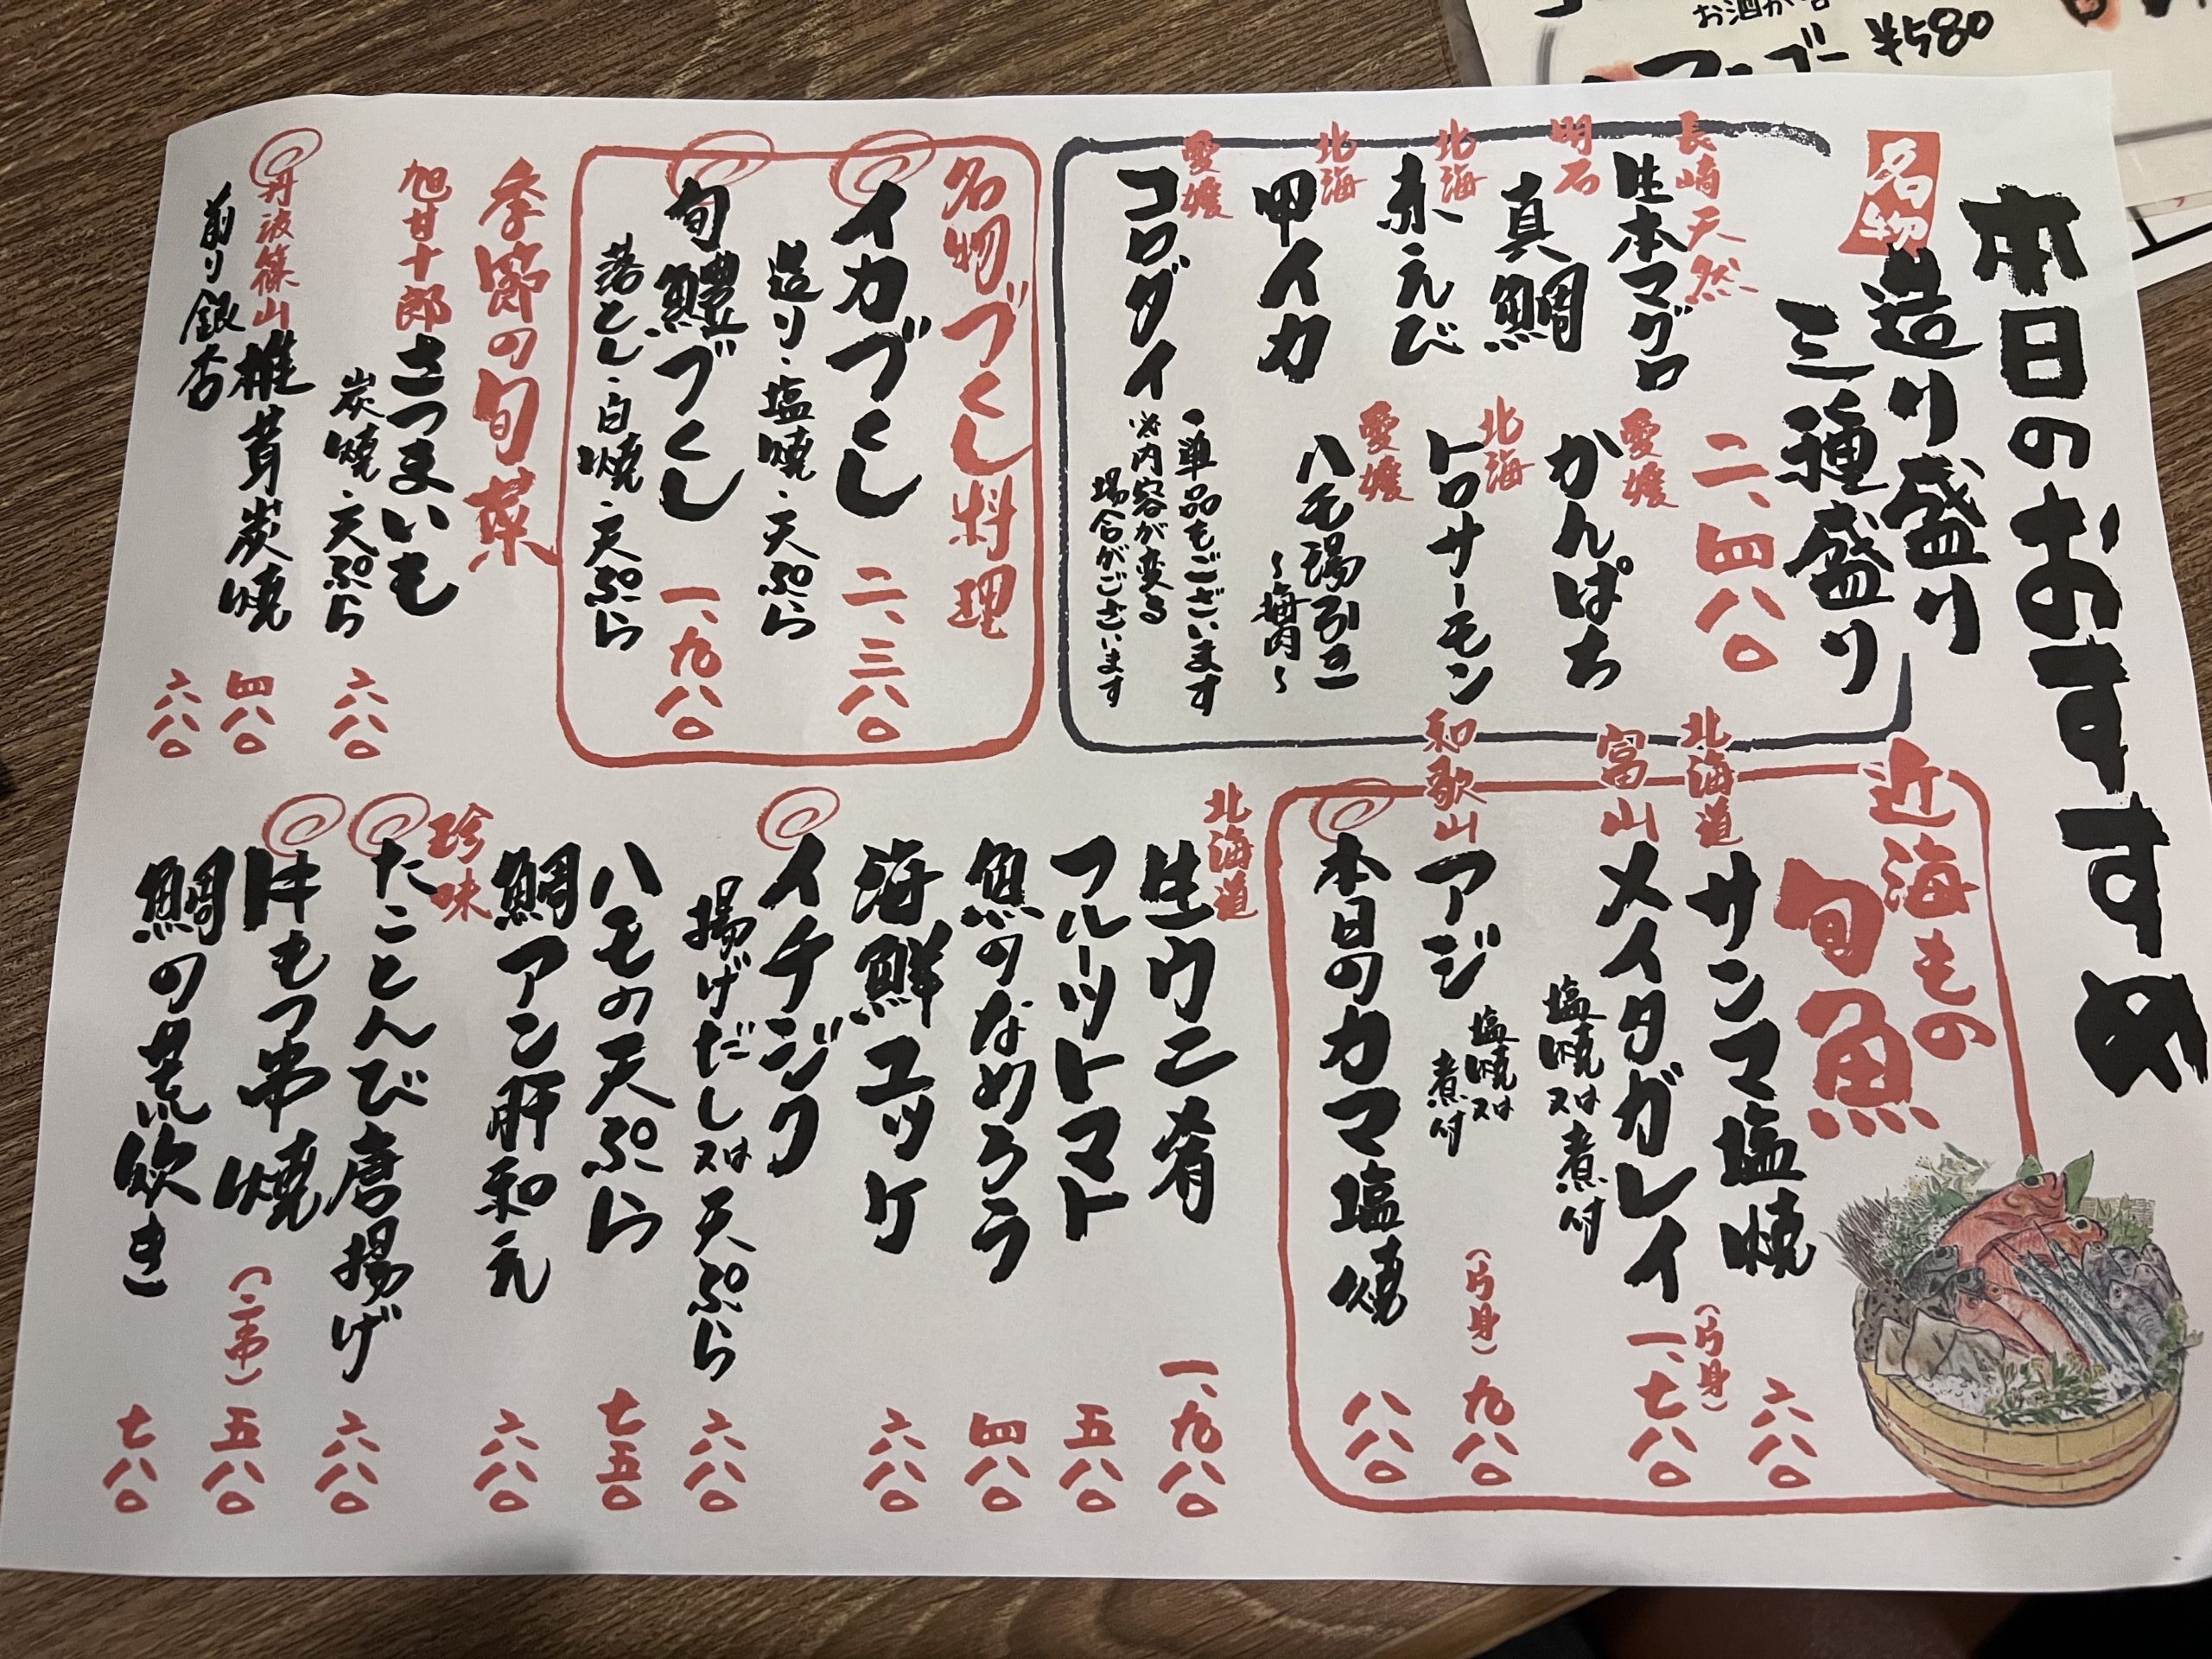 本日のおすすめ
名物
造り盛り
三種盛り
二、四八〇
長崎天然
生本マグロ
明石
真鯛
北海
赤えび
北海
甲イカ
愛媛
コロダイ
愛媛
かんぱち
北海
トロサーモン
愛媛
ハモ湯引き
〜梅肉〜
・単品もございます
※内容が変る
場合がございます
名物づくし料理
イカづくし
二、三八〇
造り・塩焼・天ぷら
旬鱧づくし
一、九八〇
落とし・白焼・天ぷら
季節の旬菜
旭甘十郎
さつまいも
炭焼・天ぷら
六八〇
丹波篠山
椎茸炭焼
四八〇
煎り銀杏
六八〇
近海もの
旬魚
北海道
サンマ塩焼
六八〇
富山
メイタガレイ
(片身)
一、七八〇
塩焼又は煮付
和歌山
アジ
塩焼又は
煮付
(片身)
九八〇
本日のカマ塩焼
八八〇
北海道
生ウニ肴
一、九八〇
フルーツトマト
五八〇
魚のなめろう
四八〇
海鮮ユッケ
六八〇
イチジク
揚げだし又は天ぷら
六八〇
ハモの天ぷら
七五〇
鯛アン肝和え
六八〇
珍味
たことんび唐揚げ
六八〇
牛もつ串焼
(二串)
五八〇
鯛の荒炊き
七八〇
¥580